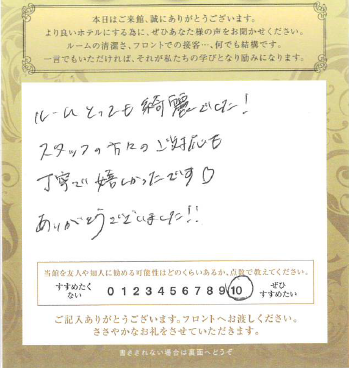 本日はご来館、誠にありがとうございます。
より良いホテルにする為に、ぜひあなた様の声をお聞かせください。
ルームの清潔さ、フロントでの接客…、何でも結構です。
一言でもいただければ、それが私たちの学びとなり励みになります。
ルームとっても綺麗でした！
スタッフの方々のご対応も
丁寧で嬉しかったです♡
ありがとうございました!!
当館を友人や知人に勧める可能性はどのくらいあるか、点数で教えてください。
すすめたくない 0 1 2 3 4 5 6 7 8 9 10 ぜひすすめたい
ご記入ありがとうございます。フロントへお渡しください。
ささやかなお礼をさせていただきます。
書ききれない場合は裏面へどうぞ